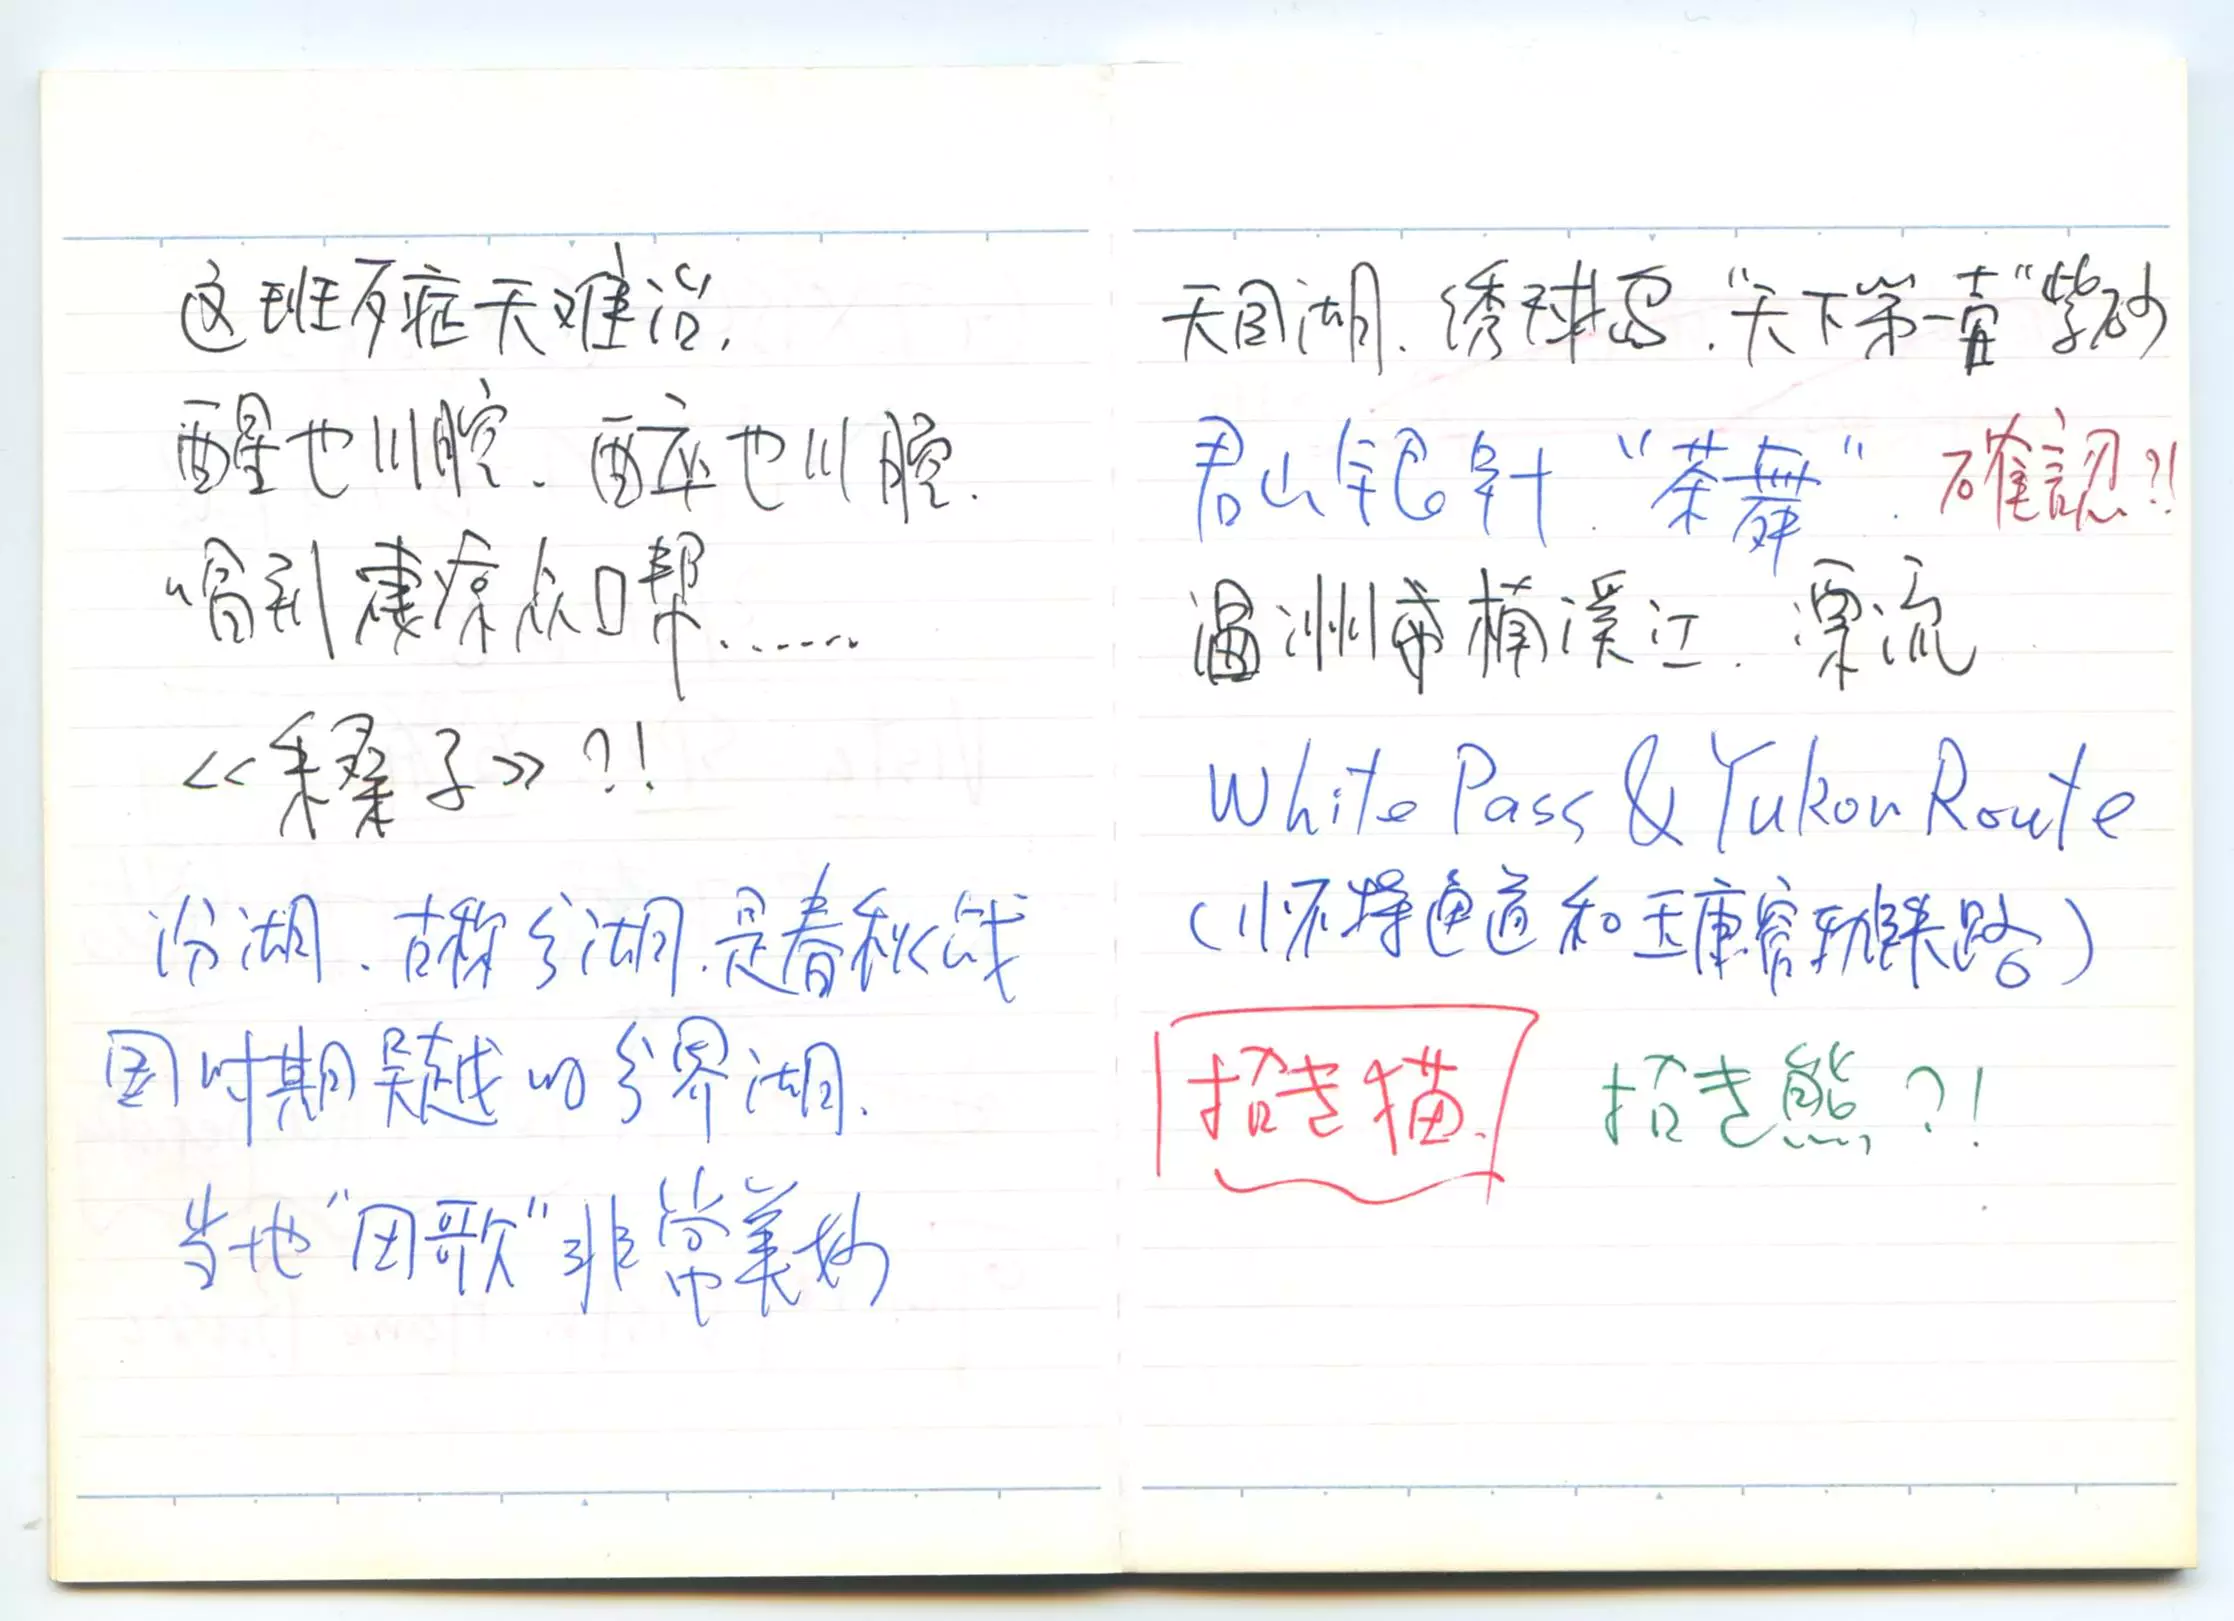 这班歹症天难治,
醒也川腔、醉也川腔.
唱到凄凉众口帮......
《采桑子》?!
汾湖、古称分湖.是春秋战
国时期吴越的分界湖.
当地“田歌”非常美妙
天目湖、绣球岛.“天下第一壶”紫砂
君山银针.“茶舞”. 確認?!
温州市楠溪江.漂流
White Pass & Yukon Route
(怀特通道和玉康容轨铁路)
招き猫. 招き熊?!